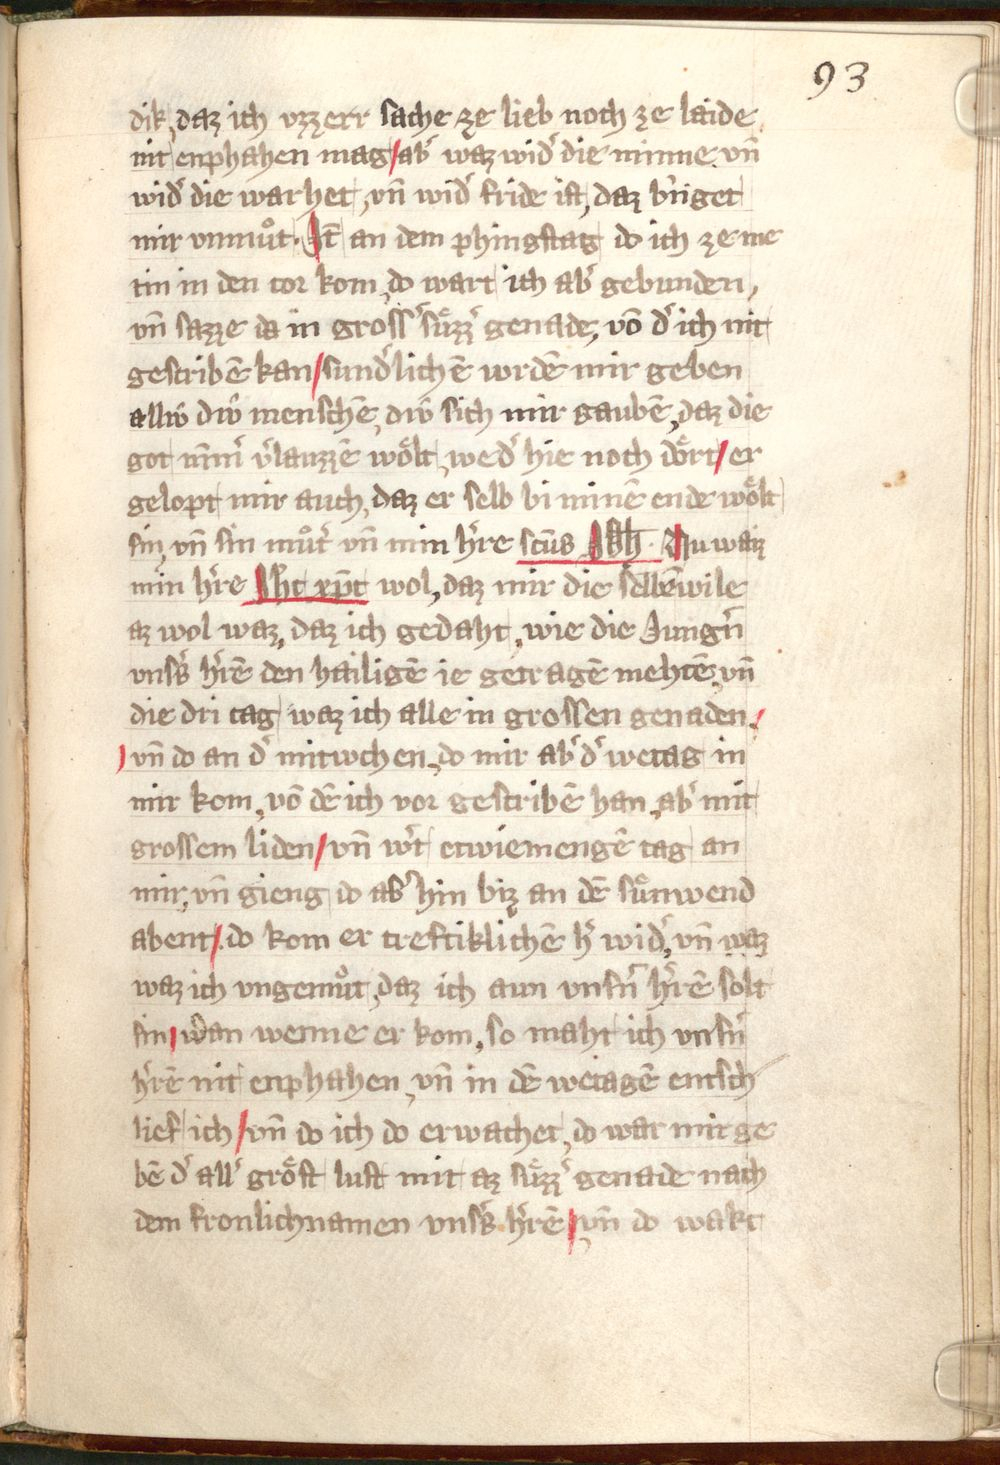 93
dik, daz ich vzzerr sache ze lieb noch ze laide
nit enphahen mag / ab͛ waz wid͛ die minne vn̄
wid͛ die warhet, vn̄ wid͛ fride ist, daz bͥnget
mir vnmuͦt. It̄ an dem phingstag do ich ze me
tin in den cor kom, do wart ich ab͛ gebunden,
vn̄ sazze da in gross͛ suͤzz͛ genade, vō d͛ ich nit
gescribē kan / sund͛lichē wrdē mir geben
allıv̂ div̂ menschē, div̂ sich mir gaubē, daz die
got nīm͛ v͛lauzzē woͤlt, wed͛ hie noch doͤrt / er
gelopt mir auch, daz er selb bi minē ende woͤlt
sin, vn̄ sin muͦt͛ vn̄ min h͛re sc̄us Ioh̄. Nu waiz
min h͛re Ih̄c xp̄c wol, daz mir die selbē wile
az wol waz, daz ich gedaht, wie die Jung͛n
vns͛s h͛rē den hailigē ie getragē mehtē, vn̄
die dri tag waz ich alle in grossen genaden /
vn̄ do an d͛ mitwchen, do mir ab͛ d͛ wetag in
mir kom, vō dē ich vor gescribē han, ab͛ mit
grossem liden / vn̄ w͛t etwiemengē tag an
mir, vn̄ gieng do ab͛ hin biz an dē suͤnwend
abent / do kom er treftiklichē h͛ wid͛, vn̄ waz
waz ich vngemuͦt, daz ich aun vns͛n h͛rē solt
sin / wan wenne er kom, so maht ich vns͛n
h͛rē nit enphahen, vn̄ in dē wetagē entsch
lief ich / vn̄ do ich do erwachet, do war mir ge
bē d͛ all͛ groͤst lust mit az suͤzz͛ genade nach
dem fronlichnamen vns͛s h͛rē / vn̄ do wakt